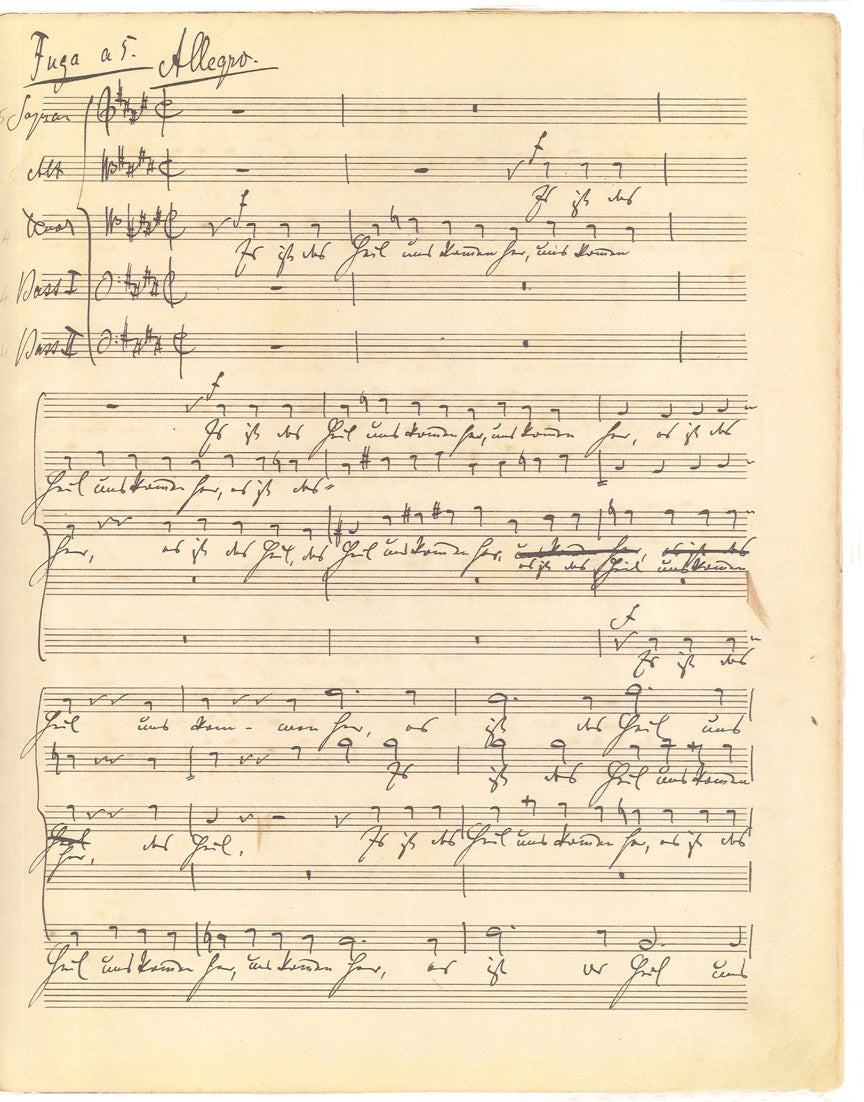 Fuga a 5. Allegro.
Sopran
Alt
f
Es ist das
Tenor
f
Es ist das Heil uns kom̅en her, uns kom̅en
Bass I
Bass II
f
Es ist das Heil uns kom̅en her, uns kom̅en her, es ist das
Heil uns kom̅en her, es ist das
her, es ist das Heil, das Heil uns kom̅en her, uns kom̅en her, es ist das
es ist das Heil uns kom̅en
f
Es ist das
Heil uns kom- men her, es ist das Heil uns
Es ist das Heil uns kom̅en
Heil
her, das Heil. Es ist das Heil uns kom̅en her, es ist das
Heil uns kom̅en her, uns kom̅en her, es ist das Heil uns